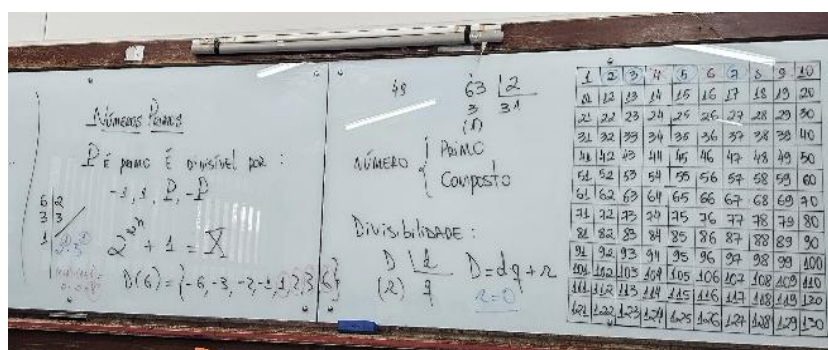 Números Primos
P é primo é divisível por :
-1, 1, P, -P
6 | 2
3 | 3
1
2^2^n + 1 = X
D(6) = {-6, -3, -2, -1, 1, 2, 3, 6}
49
63 | 2
3 31
(1)
NÚMERO { Primo
Composto
Divisibilidade :
D | d D = dq + r
(r) q r=0
1 2 3 4 5 6 7 8 9 10
11 12 13 14 15 16 17 18 19 20
21 22 23 24 25 26 27 28 29 30
31 32 33 34 35 36 37 38 39 40
41 42 43 44 45 46 47 48 49 50
51 52 53 54 55 56 57 58 59 60
61 62 63 64 65 66 67 68 69 70
71 72 73 74 75 76 77 78 79 80
81 82 83 84 85 86 87 88 89 90
91 92 93 94 95 96 97 98 99 100
101 102 103 104 105 106 107 108 109 110
111 112 113 114 115 116 117 118 119 120
121 122 123 124 125 126 127 128 129 130